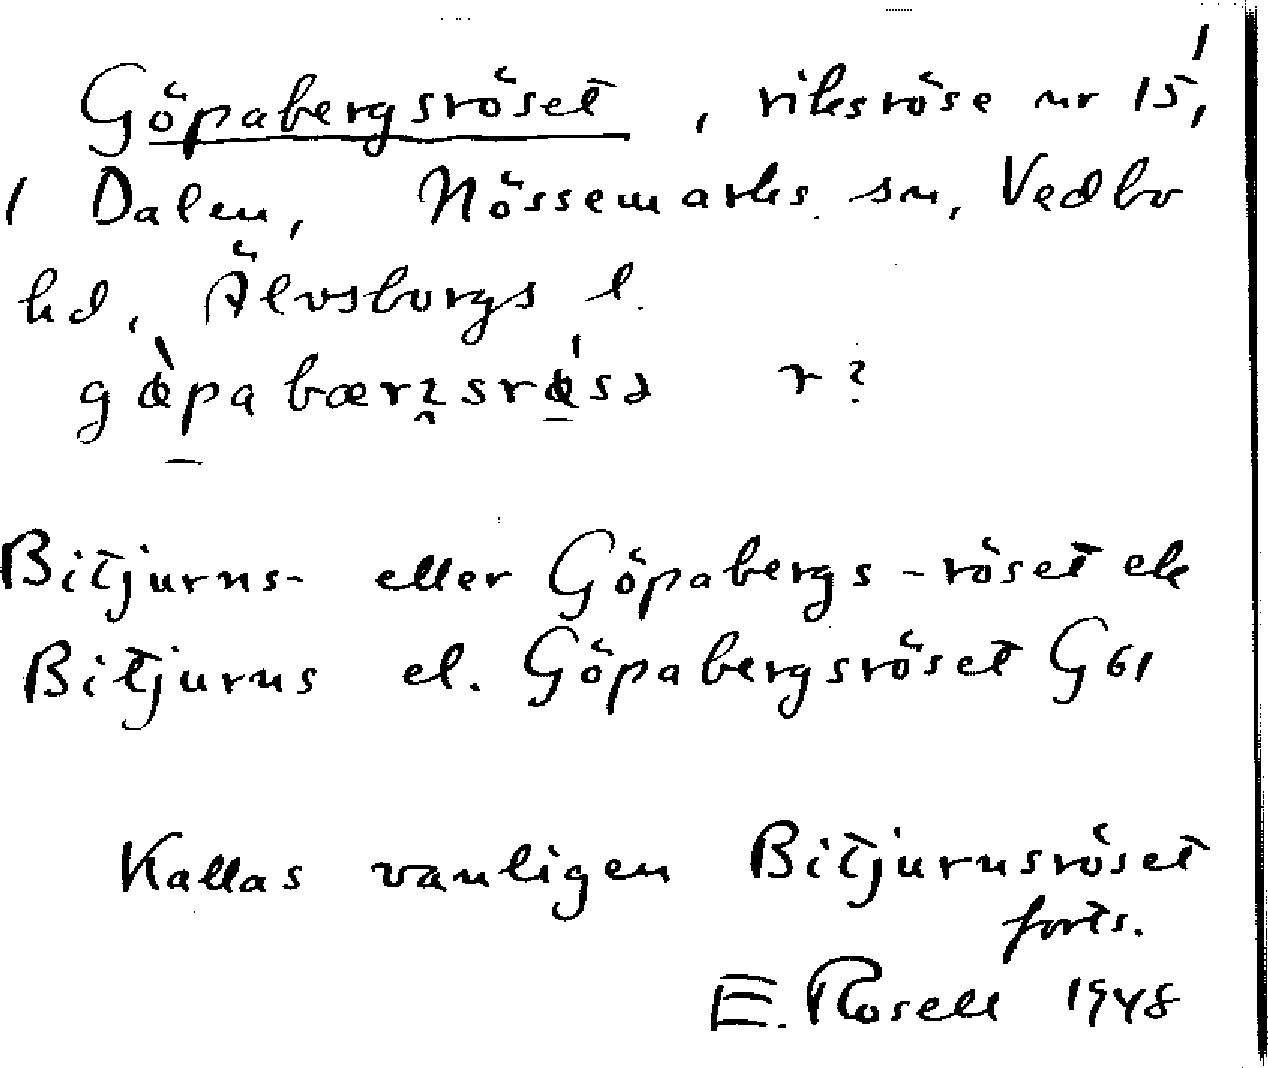 1
Göpabergsröset, riksröse nr 15,
1 Dalen, Nössemarks sn, Vedbo
hd, Älvsborgs l.
r?
Bitjurns- eller Göpabergs-röset ek
Bitjurns el. Göpabergsröset G61
Kallas vanligen Bitjurnsröset
forts.
E. Rosell 1948